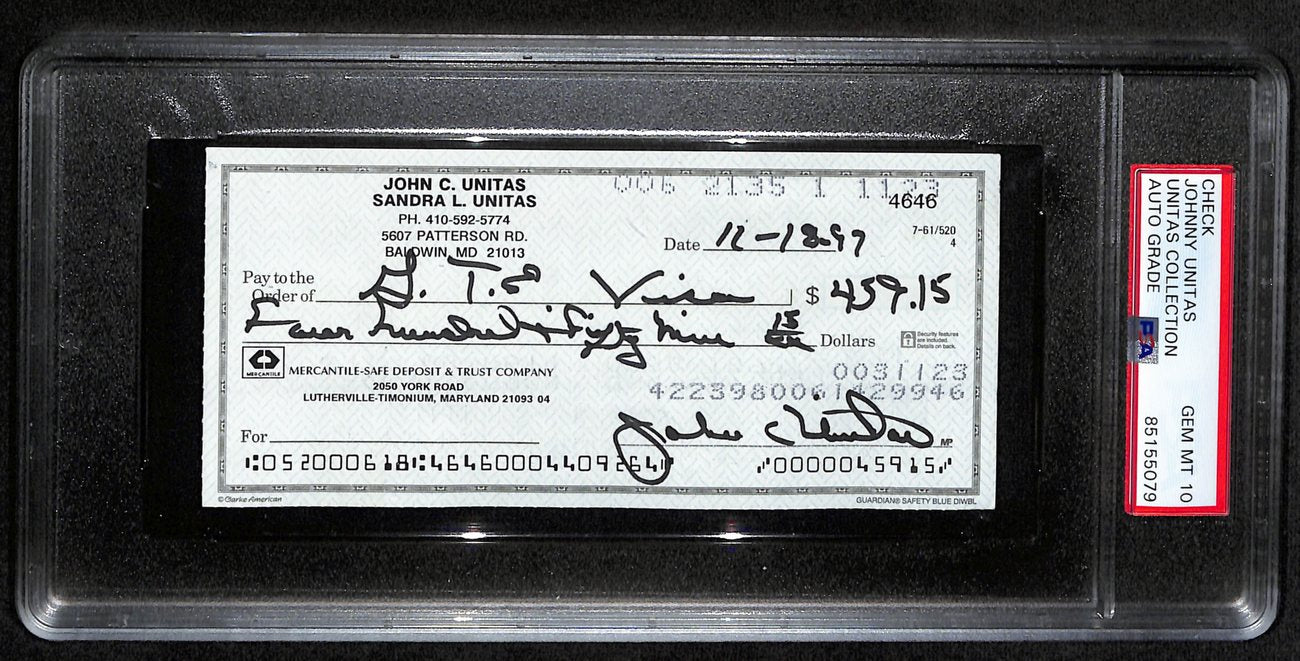 JOHN C. UNITAS
SANDRA L. UNITAS
PH. 410-592-5774
5607 PATTERSON RD.
BALDWIN, MD 21013
006 2135 1 1123
4646
7-61/520
4
Date 11-18-97
Pay to the
Order of G. T. E Visa $ 459.15
Four hundred fifty nine 15 Dollars
Security features
are included.
Details on back.
MERCANTILE
MERCANTILE-SAFE DEPOSIT & TRUST COMPANY
2050 YORK ROAD
LUTHERVILLE-TIMONIUM, MARYLAND 21093 04
0031123
4223980061429946
For
John Unitas MP
⑆052000618⑆4646000440926 4⑈ ⑈0000045915⑈
© Clarke American
GUARDIAN® SAFETY BLUE DIWBL
CHECK
JOHNNY UNITAS
UNITAS COLLECTION
AUTO GRADE GEM MT 10
85155079
PSA